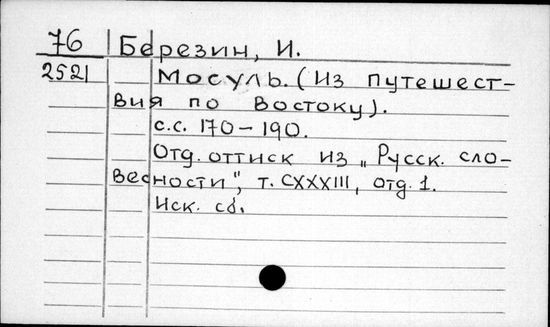 76 Березин, И.
2521 Мосуль. (Из путешест-
вия по Востоку).
с.с. 170-190.
Отд. оттиск из „Русск. сло-
весности", т. CXXXIII, отд. 1.
Иск. сб.